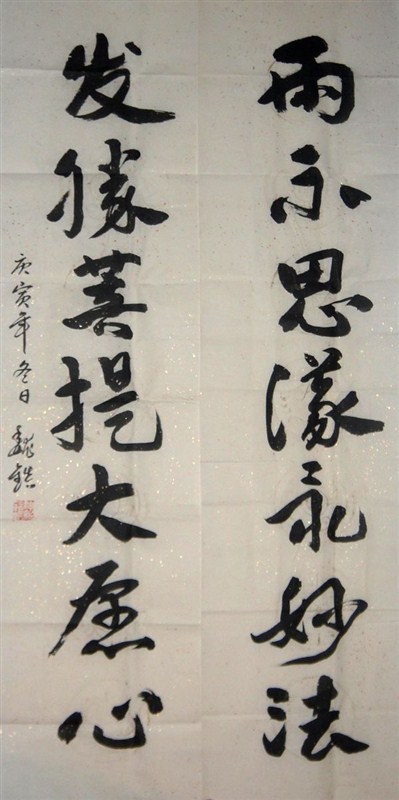 雨不思議众妙法
发胜菩提大愿心
庚寅年冬日 魏